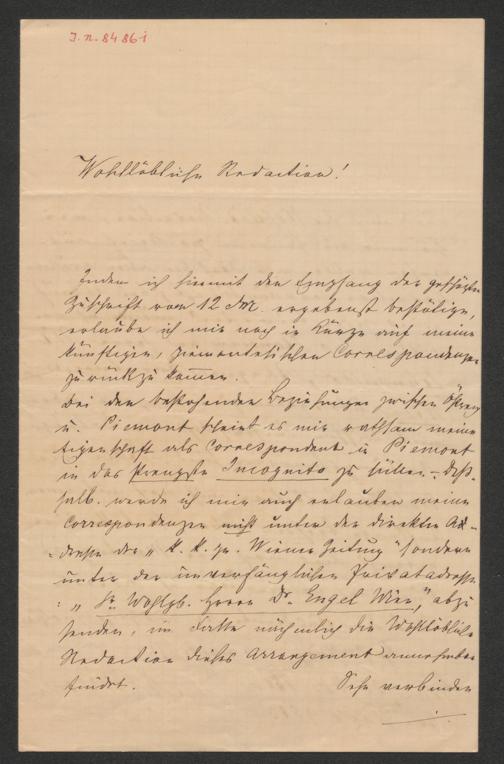 J. n. 84861
Wohllöbliche Redaction!
Indem ich hiermit den Empfang der geschätzten
Zuschrift vom 12 d. M. ergebenst bestätige,
erlaube ich mir noch in Kürze auf meine
künftigen, piemontesischen Correspondenzen
zurückzukommen.
Bei den bestehenden Beziehungen zwischen Östreich
u. Piemont scheint es mir rathsam meine
Eigenschaft als Correspondent in Piemont
in das strengste Incognito zu hüllen. – Deß-
halb werde ich mir auch erlauben meine
Correspondenzen nicht unter der direkten Ad-
dresse der „K. K. pr. Wiener Zeitung" sondern
unter der unverfänglichen Privatadresse
: „Sr Wohlgb. Herrn Dr. Engel Wien", abzu
senden, im Falle nähmlich die Wohllöbliche
Redaction dieses Arrangement annehmbar
findet. Sehr verbinden